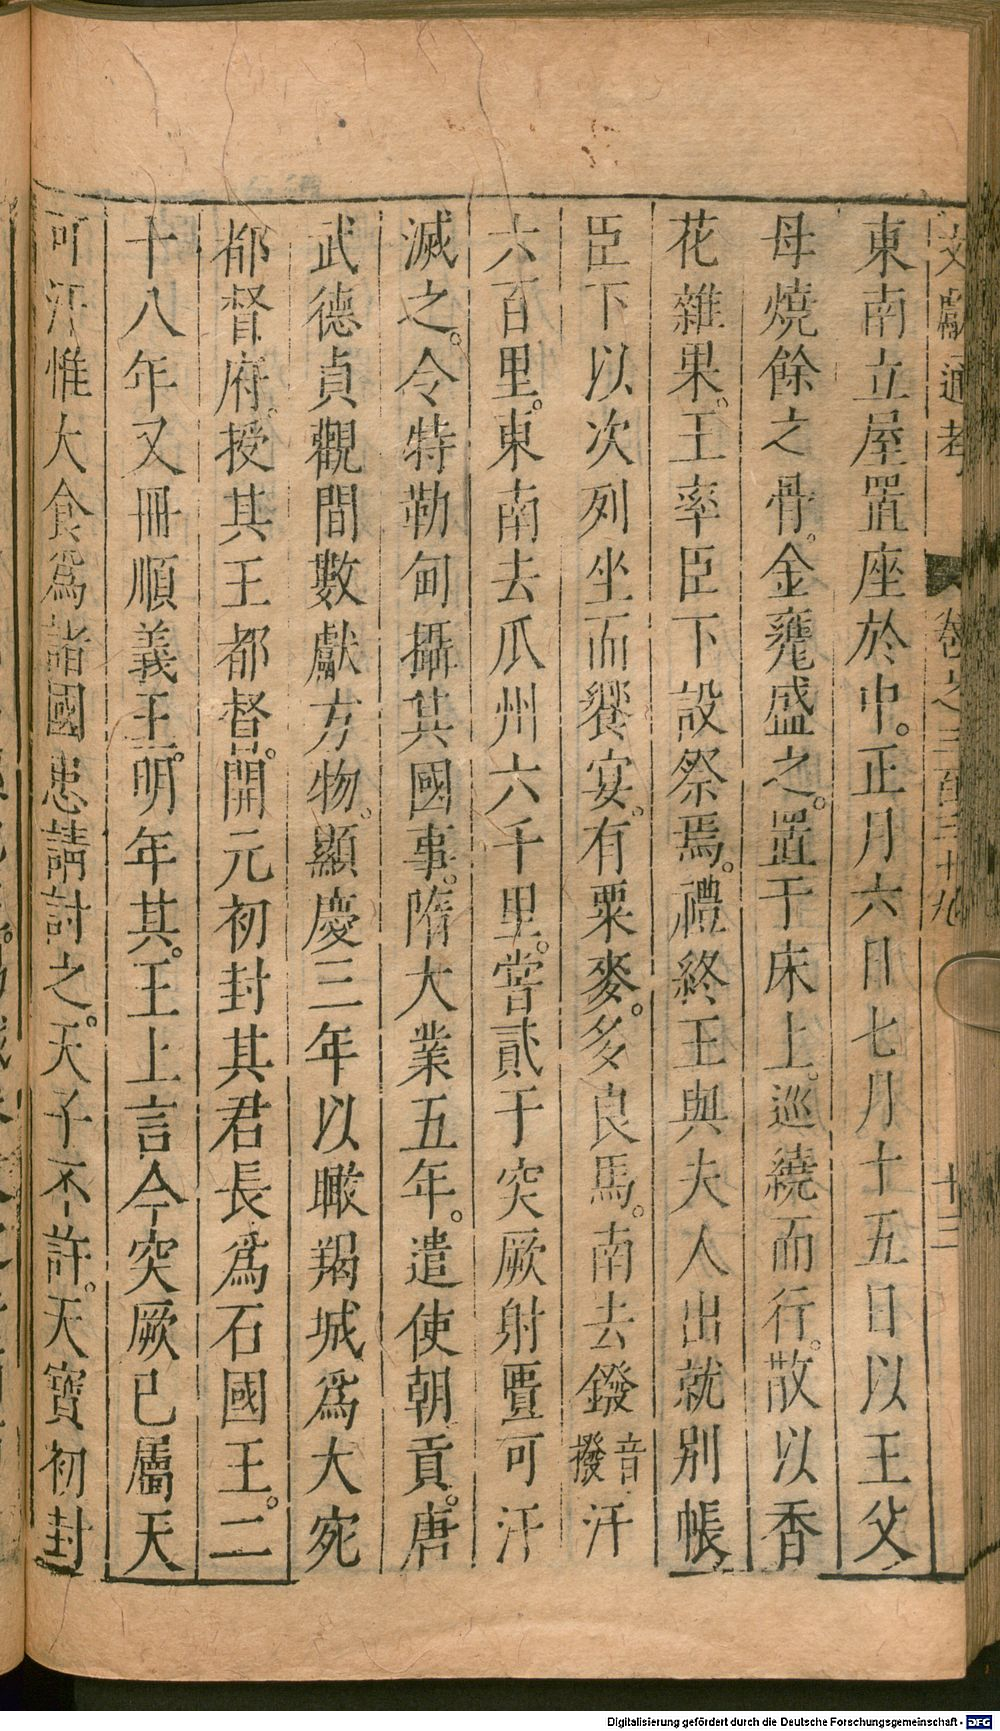 文獻通考 卷之三百三十九 十三
東南立屋置座於中。正月六日七月十五日以王父
母燒餘之骨。金甕盛之。置于床上。巡繞而行。散以香
花雜果。王率臣下設祭焉。禮終王與夫人出就別帳
臣下以次列坐而饗宴。有粟麥。多良馬。南去鏺音撥汗
六百里。東南去瓜州六千里。嘗貳于突厥射匱可汗
滅之。令特勒甸攝其國事。隋大業五年。遣使朝貢。唐
武德貞觀間數獻方物。顯慶三年以瞰羯城爲大宛
都督府。授其王都督。開元初封其君長爲石國王。二
十八年又冊順義王。明年其。王上言今突厥已屬天
可汗惟大食爲諸國患請討之。天子不許。天寶初封
Digitalisierung gefördert durch die Deutsche Forschungsgemeinschaft - DFG